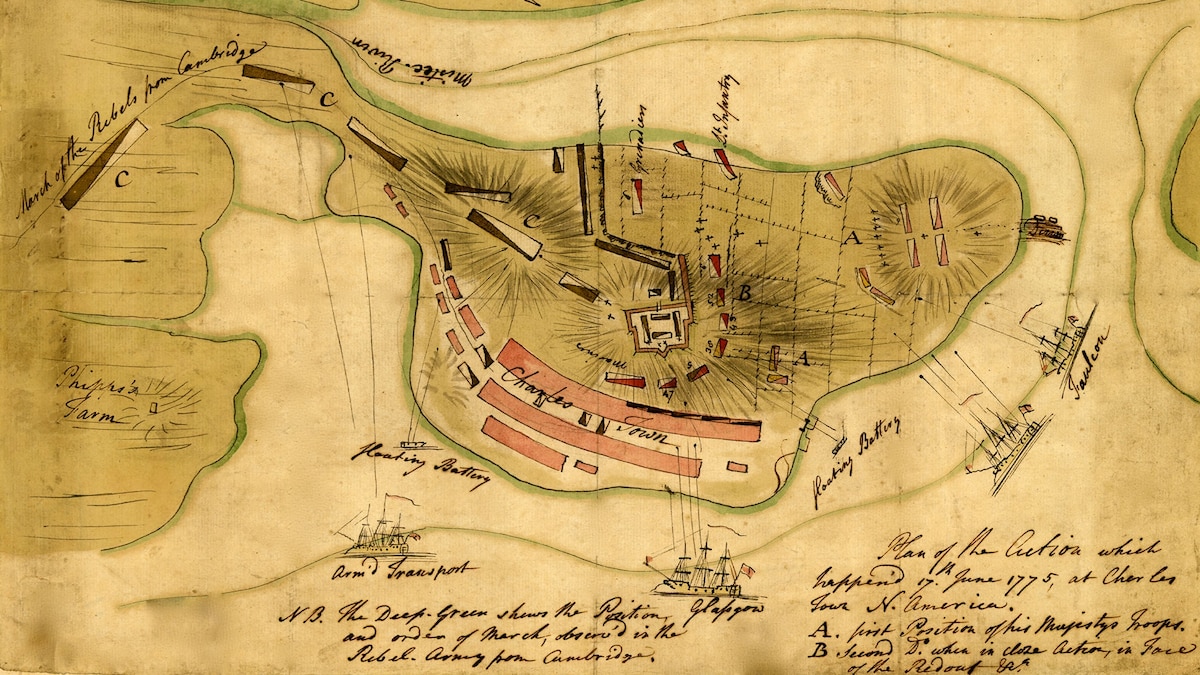 March of the Rebels from Cambridge
C
C
Mistic River
Grenadiers
Lt. Infantry
C
A
B
52
43
38
A
5
47
Charles Town
Phipps's
Farm
floating Battery
floating Battery
Faulcon
Arm'd Transport
Glasgow
N B. The Deep-Green shews the Position,
and order of March, observ'd in the
Rebel-Army from Cambridge.
Plan of the Action which
happen'd 17th. June 1775, at Charles
Town N. America.
A. first Position of his Majestys Troops.
B Second Do. when in close Action, in Face
of the Redout &c.